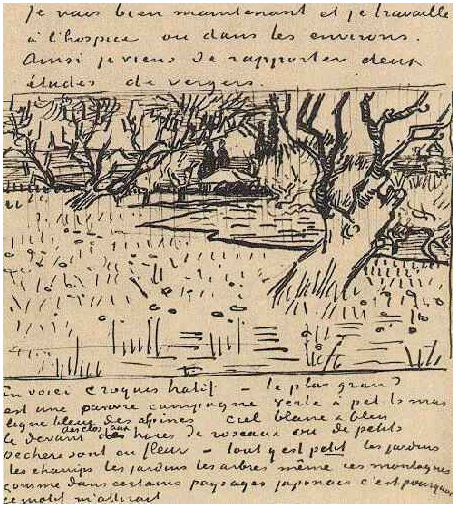 Je vais bien maintenant et je travaille
à l'hospice ou dans les environs.
Ainsi je viens de rapporter deux
études de vergers.
En voici croquis hatif – le plus grand
est une pauvre campagne verte à petits mas
ligne bleue des alpines ciel blanc & bleu
Le devant des clos aux haies de roseaux où de petits
pechers sont en fleur – tout y est petit les jardins
les champs les jardins les arbres même ces montagnes
comme dans certains paysages japonais c'est pourquoi
ce motif m'attirait